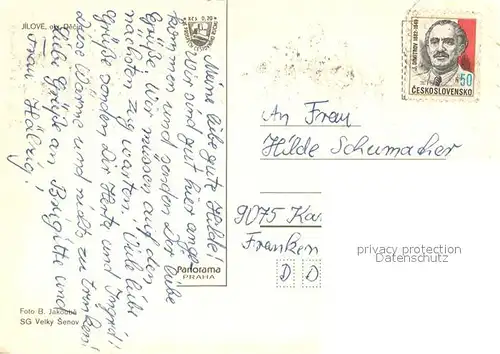 JÍLOVÉ, okr. Děčín
Kčs 0,20
Meine liebe gute Hilde!
Wir sind gut hier ange-
kommen und senden Dir liebe
Grüße. Wir müssen auf den
nächsten Zug warten. Viele liebe
Grüße senden Dir Herta und Ingrid!
das Warme und nichts zu trinken!
Liebe Grüße an Brigitte und
Frau Hälbig!
J. DIMITROV 1882-1949
50
ČESKOSLOVENSKO
An Frau
Hilde Schumacher
9075 Ka.
Franken
D D
Panorama
PRAHA
Foto B. Jakoubě
SG Velký Šenov
privacy protection
Datenschutz